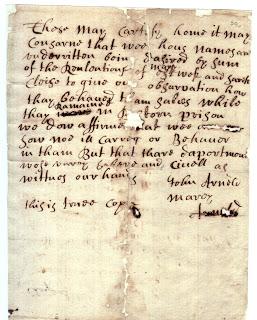 Those may cartify home it may
Consarne that wee hous names are
underritten bein desired by sum
of the Realations of mary Btwst and sarah
Cloise to give our observation how
thay behaued tham salues while
thay Remained in Boston prison
we Dow affirme that wee
Saw noe ill Carreg or Behauer
in tham But that thare daportment
wose varey sober and Ciuell as
witnes our hands
John Arnold
Marey
Arnold
this is treue Copia